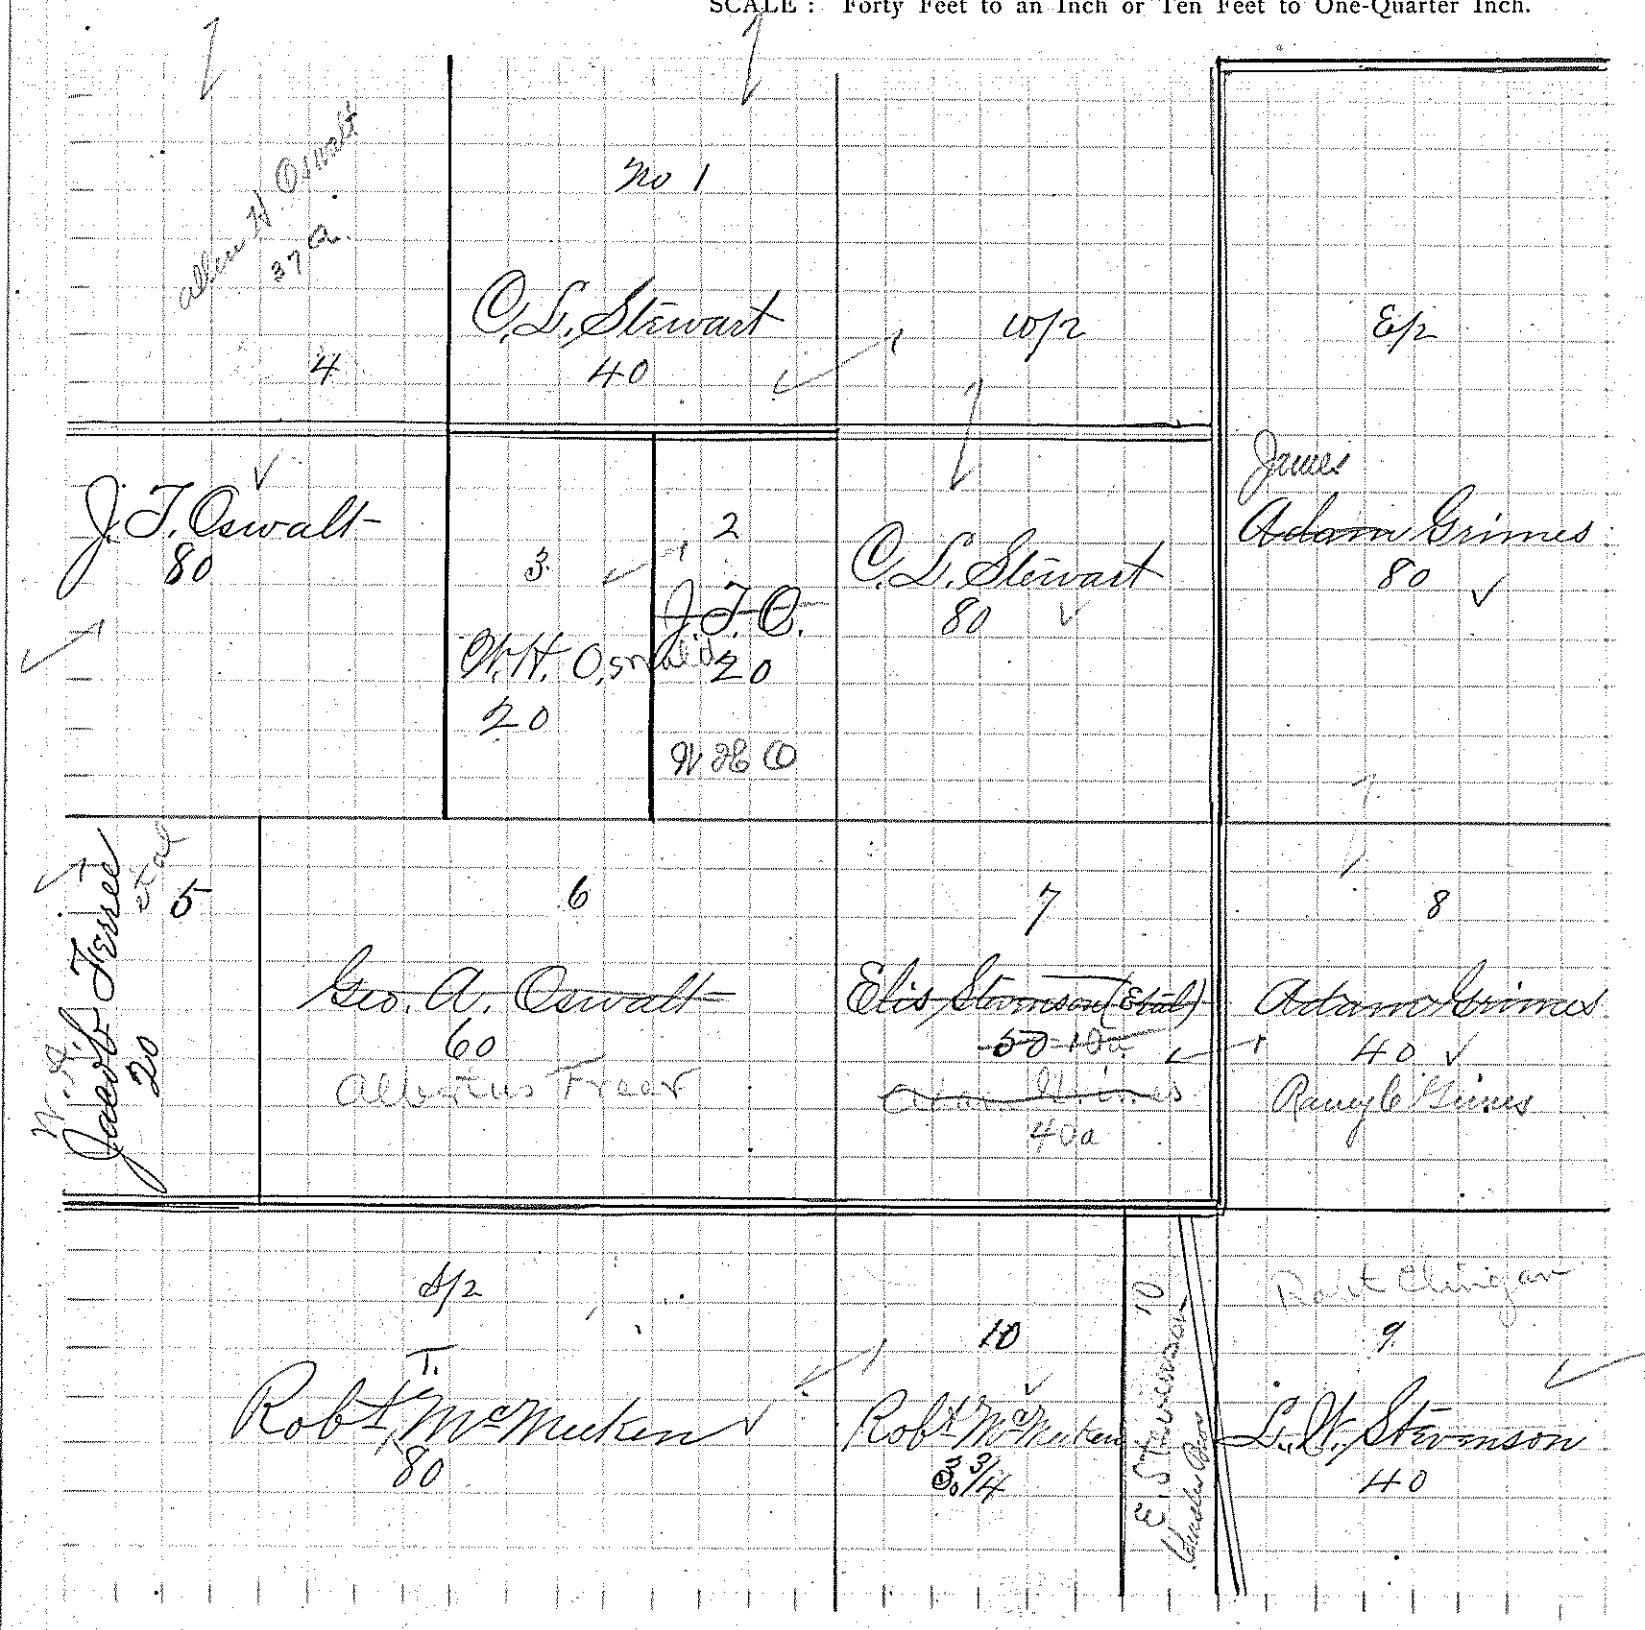 SCALE : Forty Feet to an Inch or Ten Feet to One-Quarter Inch.
Allen H. Oswalt
37 a.
4
No 1
C. L. Stewart
40
W/2
E/2
J. T. Oswalt
80
3
W. H. Oswald
20
2
J. T. O.
20
W H O
C. L. Stewart
80
James
Adam Grimes
80
W. S.
Jacob Ferree
et al
20
5
6
Geo. A. Oswalt
60
Albertus Freer
7
Elis Stevenson (Et al)
50 10a
Adam Grimes
40a
8
Adam Grimes
40
Grimes
S/2
T.
Robt McMeeken
80
10
Robt McMeeken
3/4
E. Stevenson 10
Robt
9
L. W. Stevenson
40